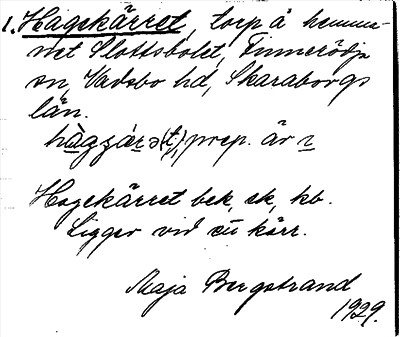 1. Hagekärret, torp å hemma-
net Slottsbolet, Finnerödja
sn, Vadsbo hd, Skaraborgs
län.
hàgʒárə(t), prep. är ɪ
Hogekärret bek, ek, kb.
Ligger vid ett kärr.
Maja Bergstrand
1929.